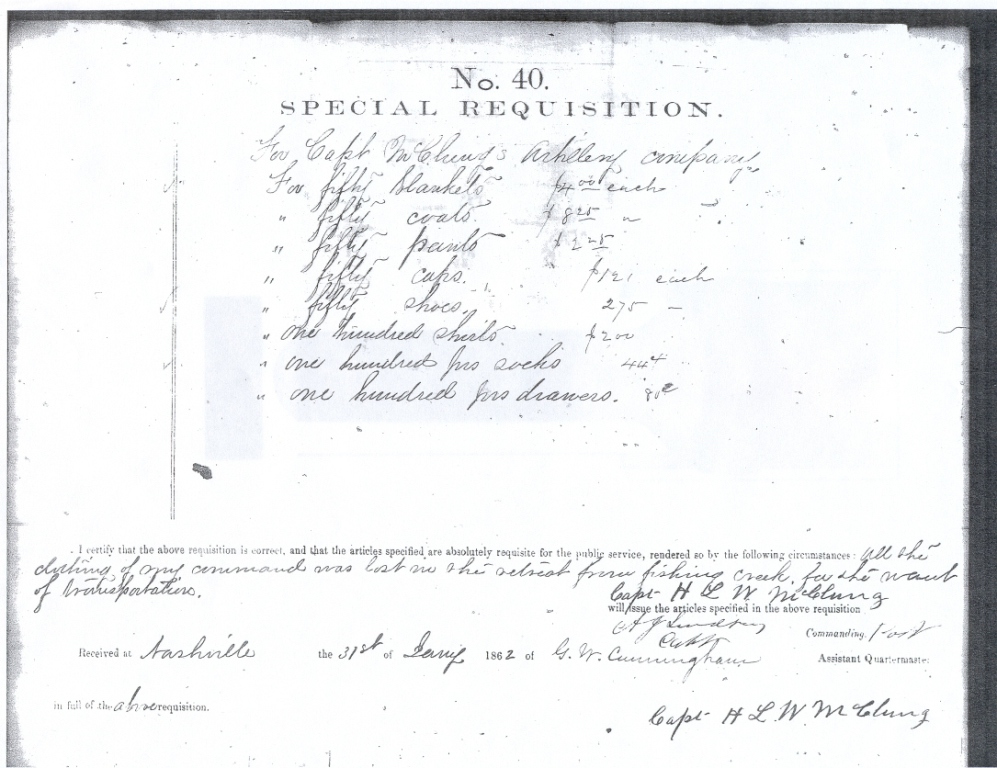 No. 40.
SPECIAL REQUISITION.
For Capt McClung's Artillery company
For fifty blankets $4 00 each
" fifty coats. $8 25 "
" fifty pants $2 25
" fifty caps. $1 21 each
" fifty shoes. 275 –
" one hundred shirts. $200
" one hundred prs socks 44
" one hundred prs drawers. 80
I certify that the above requisition is correct, and that the articles specified are absolutely requisite for the public service, rendered so by the following circumstances: All the
clothing of my command was lost in the retreat from fishing creek, for the want
of transportation.
Capt H L W McClung
will issue the articles specified in the above requisition
Capt
Commanding. Post
Received at Nashville the 31st of Jany 1862 of G. W. Cunningham Assistant Quartermaster
in full of the above requisition.
Capt H L W McClung